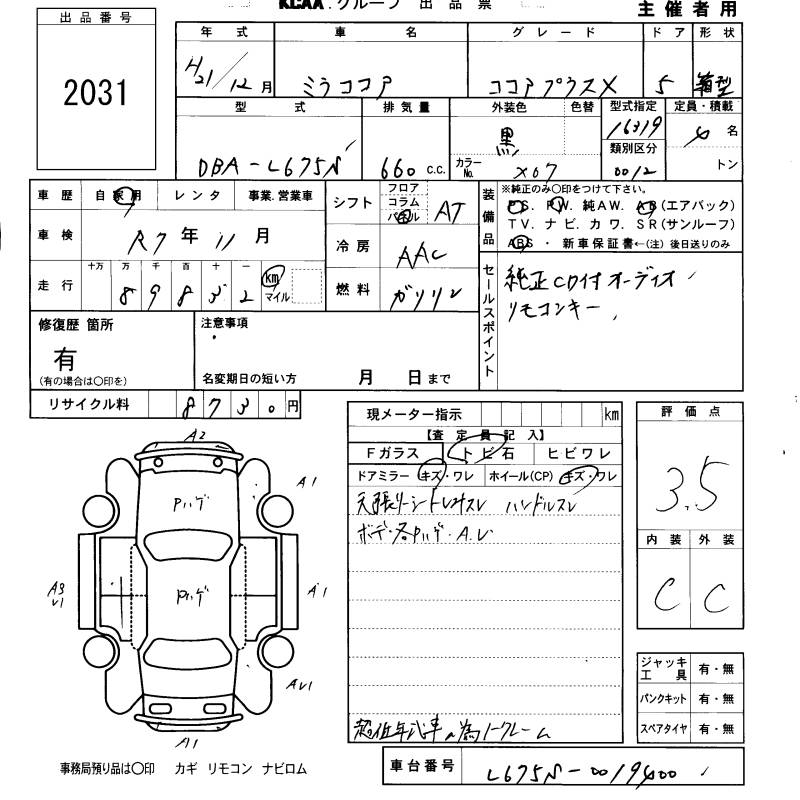 KCAA.グループ 出品票
主催者用
出品番号
2031
年式 車名 グレード ドア 形状
H21/12月 ミラココア ココアプラスX 5 箱型
型式 排気量 外装色 色替 型式指定 定員・積載
DBA-L675S 660 c.c. 黒 カラーNo. X07 16319 4名
類別区分
0012 トン
車歴 自家用 レンタ 事業.営業車
車検 R7年11月
走行 十万 万 千 百 十 一
89832 km マイル
シフト フロア コラム パネル AT
冷房 AAC
燃料 ガソリン
装備品 ※純正のみ○印をつけて下さい。
PS. PW. 純AW. AB(エアバック)
TV. ナビ. カワ. SR(サンルーフ)
ABS ・ 新車保証書←(注) 後日送りのみ
セールスポイント
純正CD付オーディオ
リモコンキー
修復歴 箇所
有
(有の場合は○印を)
注意事項
名変期日の短い方 月 日まで
リサイクル料 8730円
現メーター指示 km
【査定員記入】
Fガラス トビ石 ヒビワレ
ドアミラー キズ・ワレ ホイール(CP) キズ・ワレ
ハンドルスレ
A.U
評価点
3.5
内装 外装
C C
A2
A1
Pハゲ
Pハゲ
A3
U1
A1
AU1
A1
ジャッキ工具 有・無
パンクキット 有・無
スペアタイヤ 有・無
超低年式車の為ノークレーム
事務局預り品は○印 カギ リモコン ナビロム
車台番号 L675S-0019400